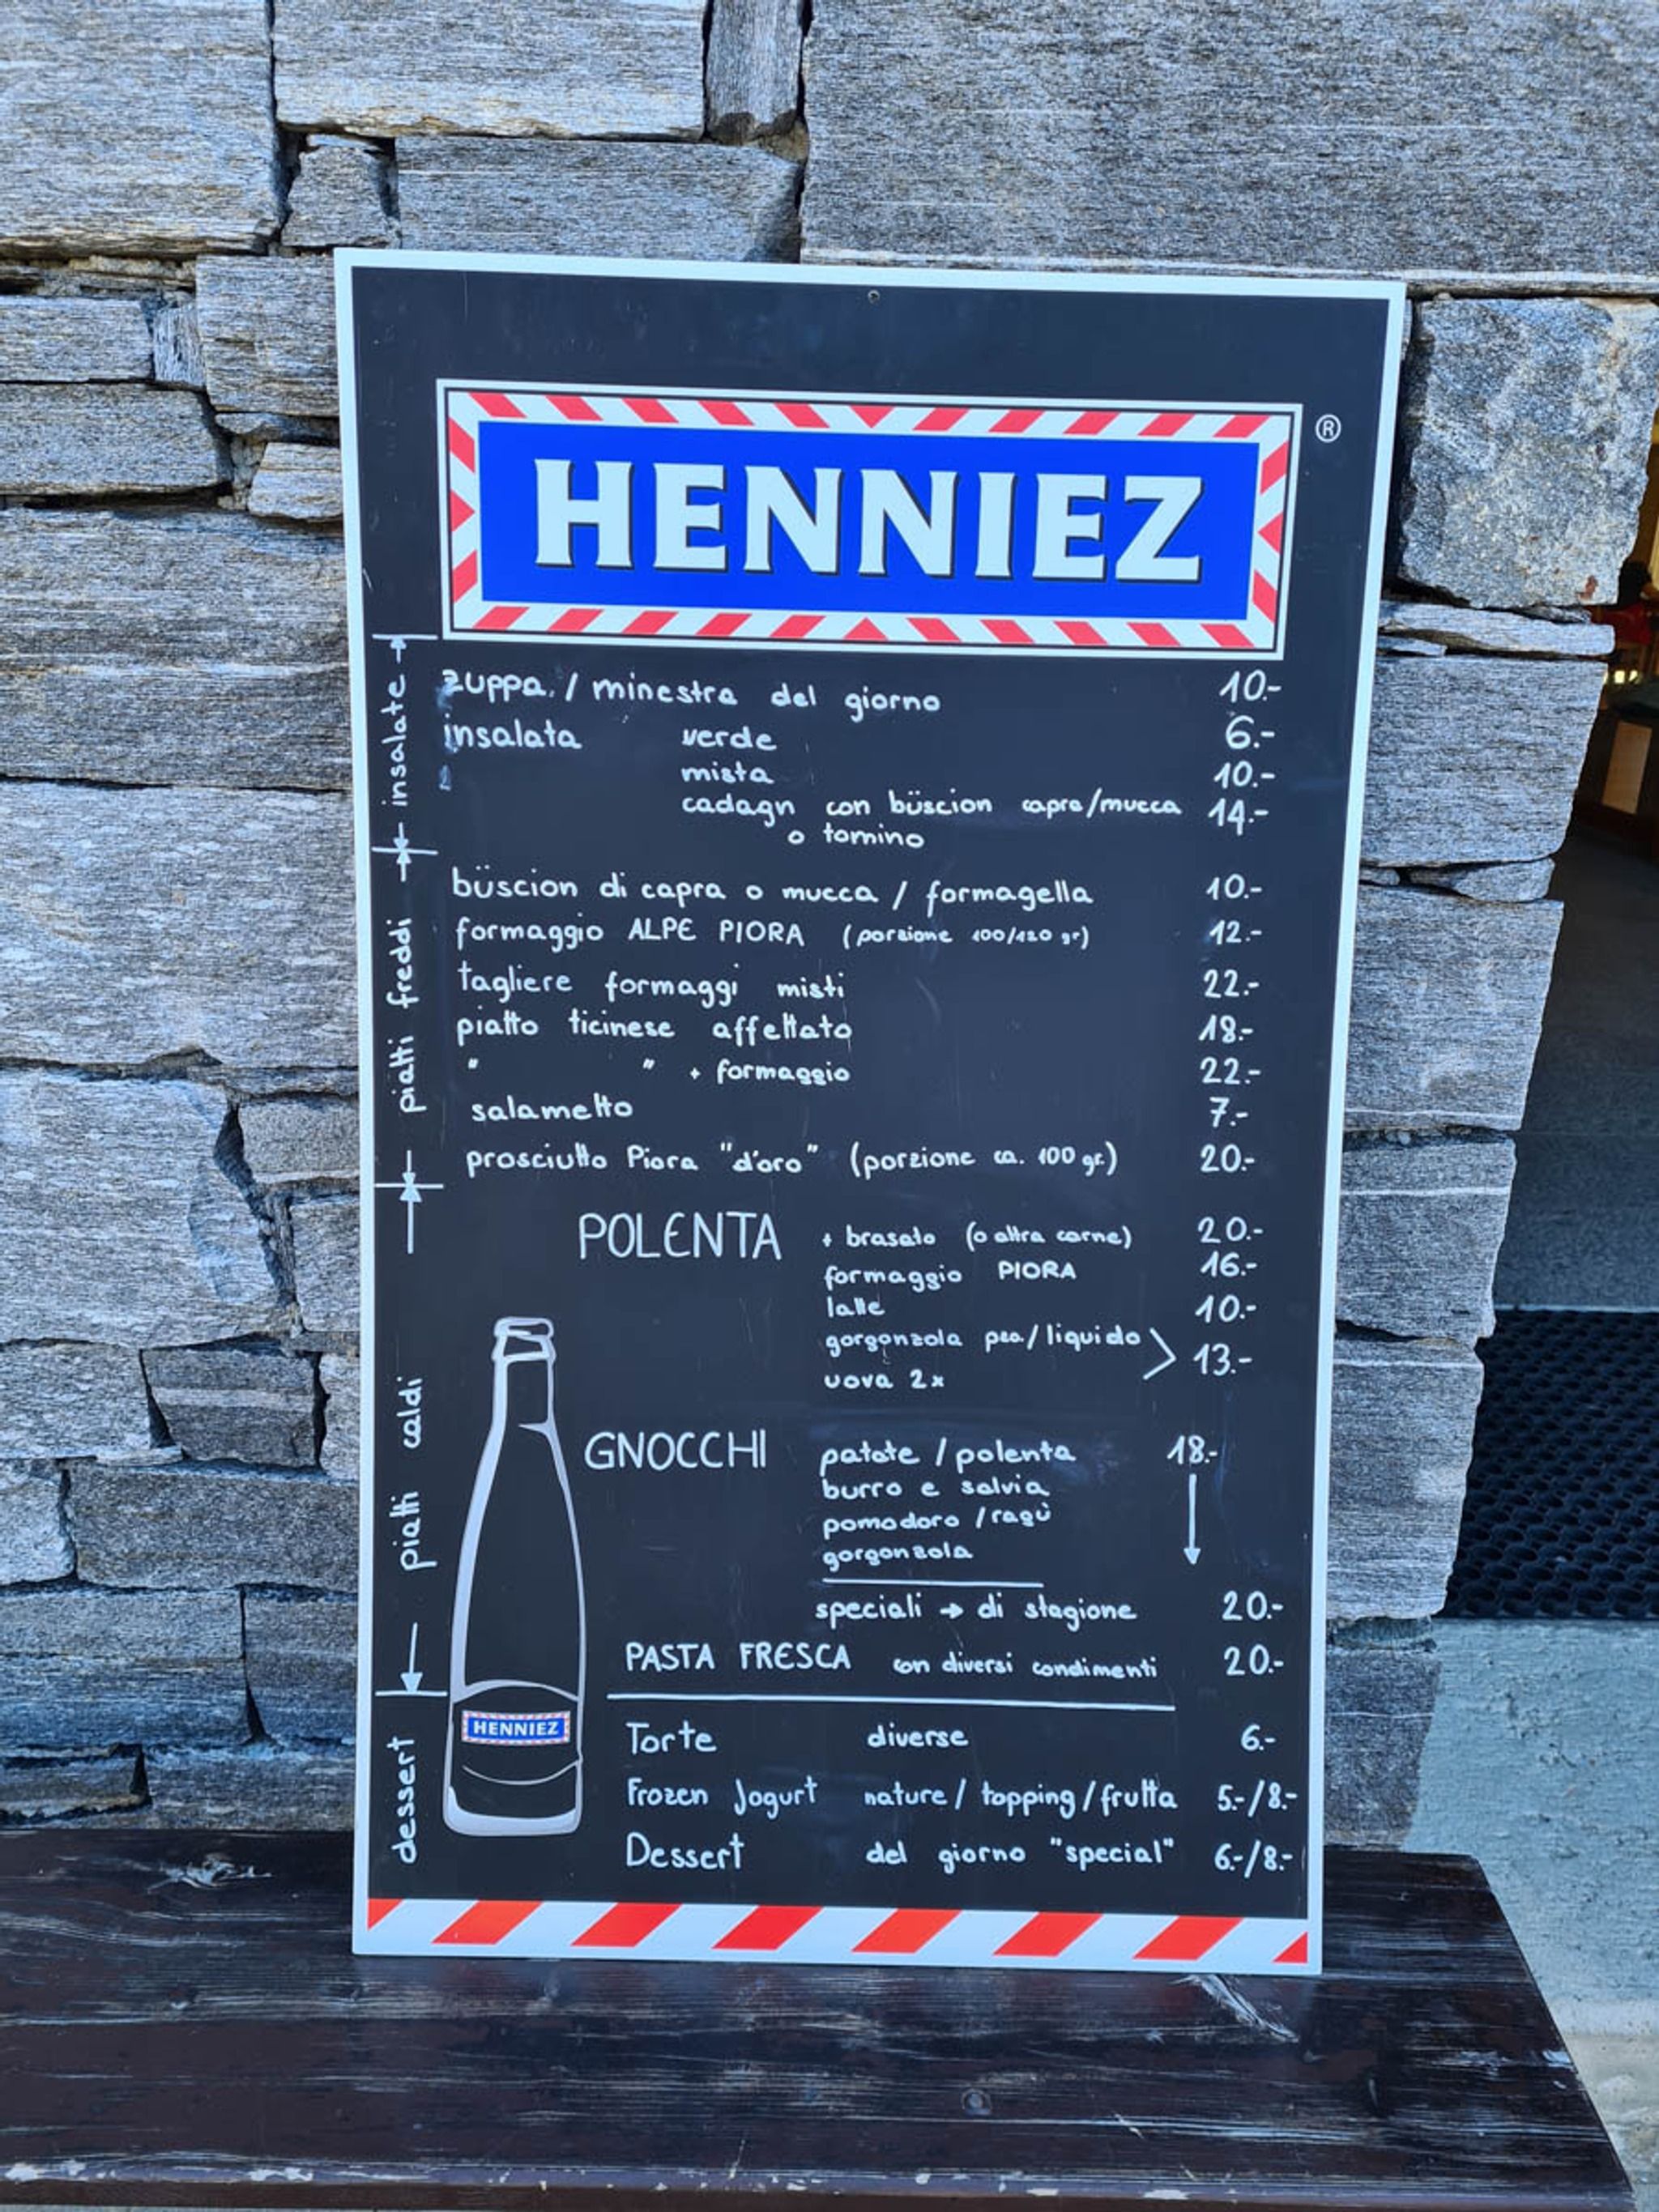 HENNIEZ
®
insalate
zuppa / minestra del giorno 10.-
insalata verde 6.-
mista 10.-
cadagn con büscion capra/mucca 14.-
o tomino
piatti freddi
büscion di capra o mucca / formagella 10.-
formaggio ALPE PIORA (porzione 100/120 gr) 12.-
tagliere formaggi misti 22.-
piatto ticinese affettato 18.-
" " + formaggio 22.-
salametto 7.-
prosciutto Piora "d'oro" (porzione ca. 100 gr.) 20.-
piatti caldi
POLENTA + brasato (o altra carne) 20.-
formaggio PIORA 16.-
latte 10.-
gorgonzola / liquido 13.-
uova 2x
GNOCCHI patate / polenta 18.-
burro e salvia
pomodoro / ragù
gorgonzola
speciali → di stagione 20.-
PASTA FRESCA con diversi condimenti 20.-
dessert
HENNIEZ
Torte diverse 6.-
Frozen Jogurt nature / topping / frutta 5.-/8.-
Dessert del giorno "special" 6.-/8.-